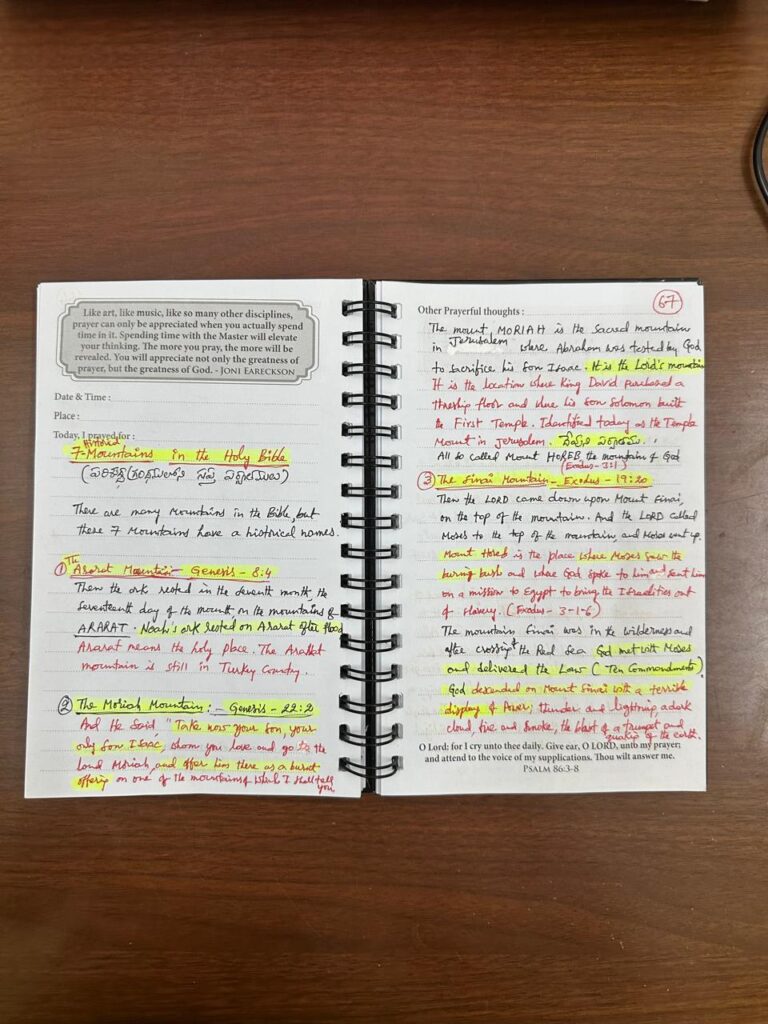 Like art, like music, like so many other disciplines,
prayer can only be appreciated when you actually spend
time in it. Spending time with the Master will elevate
your thinking. The more you pray, the more will be
revealed. You will appreciate not only the greatness of
prayer, but the greatness of God. - JONI EARECKSON
Date & Time :
Place :
Today, I prayed for :
7-Mountains in the Holy Bible
There are many Mountains in the Bible, but
these 7 Mountains have a historical names.
① The Ararat Mountain - Genesis - 8:4
Then the ark rested in the seventh month, the
seventeenth day of the month, on the mountains of
ARARAT. Noah's ark rested on Ararat after flood
Ararat means the holy place. The Ararat
mountain is still in Turkey Country.
② The Moriah Mountain: - Genesis - 22:2
And He Said "Take now your son, your
only Son Isaac, whom you love and go to the
Land Moriah, and offer him there as a burnt
offering on one of the mountains of which I shall tell
you.
Other Prayerful thoughts :
67
The mount, MORIAH is the Sacred mountain
in Jerusalem where Abraham was tested by God
to sacrifice his Son Isaac. It is the Lord's mountain
It is the location where King David purchased a
floor and his Son Solomon built
the First Temple. Identified today as the Temple
Mount in Jerusalem.
All so called Mount HOREB, the mountain of God
(Exodus - 3:1)
③ The Sinai Mountain - Exodus - 19:20
Then the LORD came down upon Mount Sinai,
on the top of the mountain. And the LORD called
Moses to the top of the mountain, and Moses went up.
Mount Horeb is the place where Moses saw the
buring bush and where God spoke to him and sent him
on a mission to Egypt to bring the Israelities out
of slavery. (Exodus - 3-1-6)
The mountain Sinai was in the wilderness and
after crossing the Red Sea God met with Moses
and delivered the Law (Ten Commandments).
God descended on Mount Sinai with a terrible
display of Power, thunder and lightning, a dark
cloud, fire and smoke, the blast of a Trumpet and
quaking of the earth.
O Lord: for I cry unto thee daily. Give ear, O LORD, unto my prayer;
and attend to the voice of my supplications. Thou wilt answer me.
PSALM 86:3-8